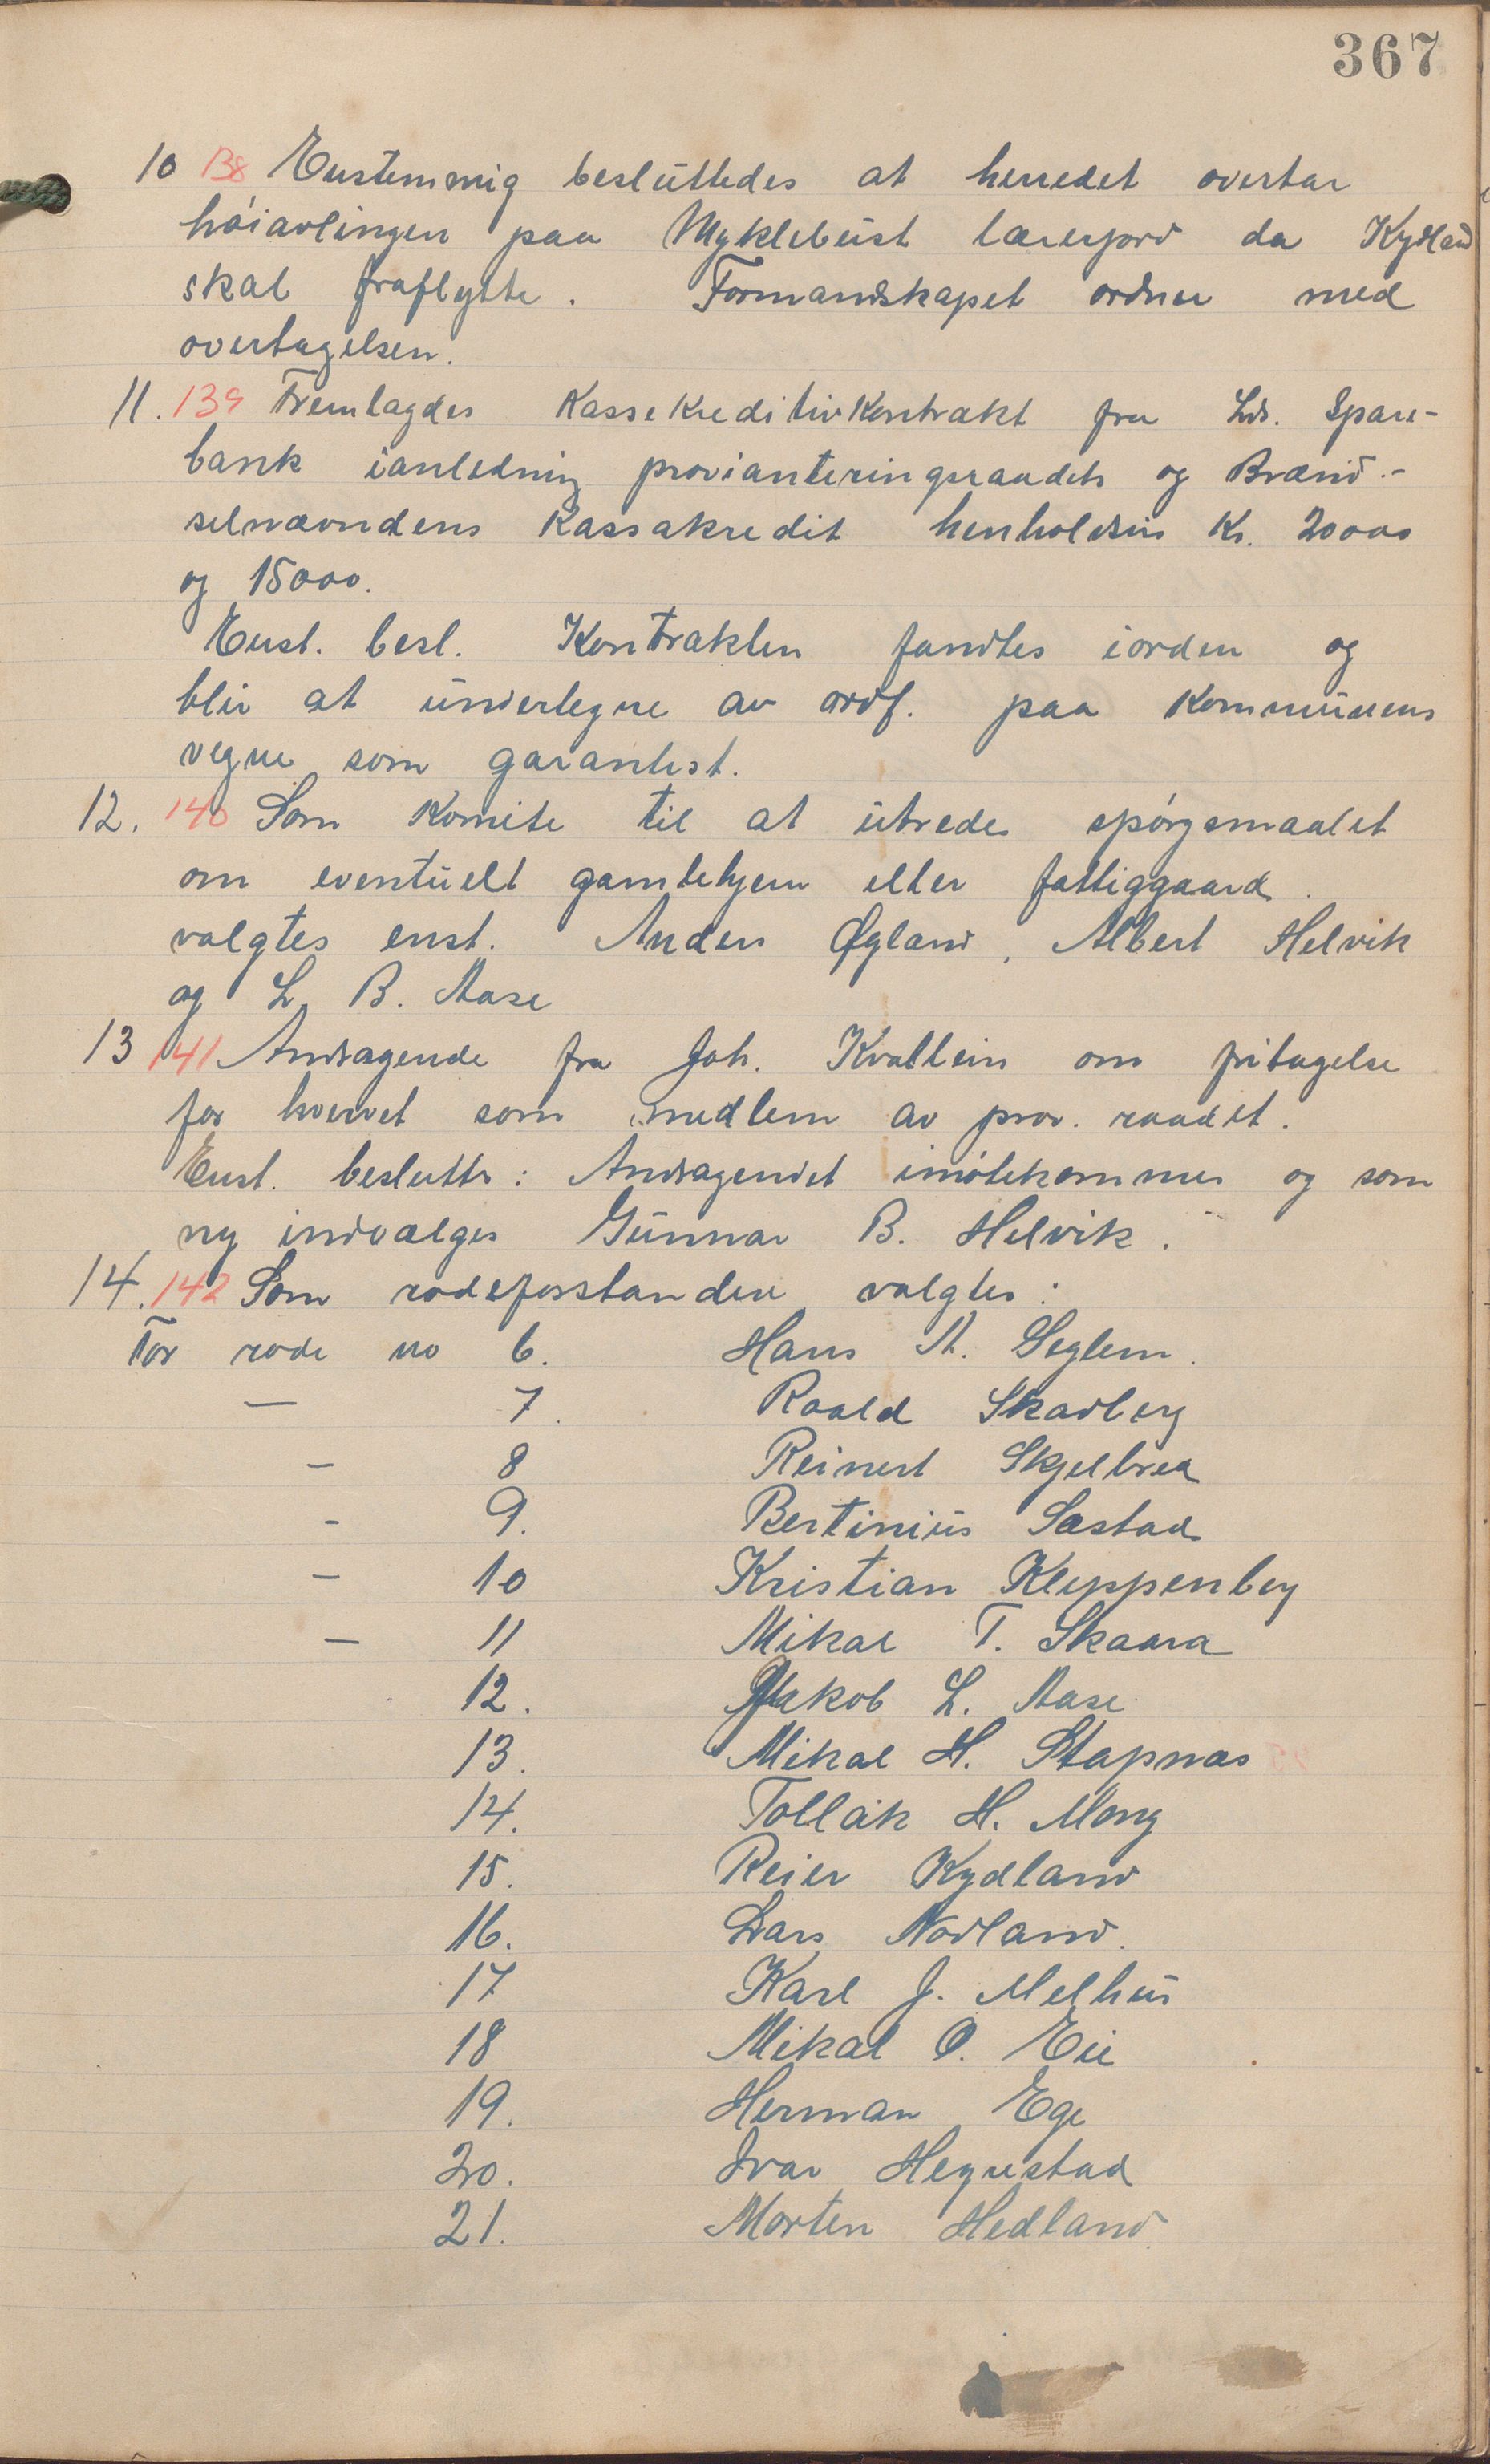 367
10 138 Enstemmig besluttedes at herredet overtar
høiavlingen paa Myklebust lærerjord da Kydland
skal fraflytte. Formandskapet ordner med
overtagelsen.
11. 139 Fremlagdes Kassekreditivkontrakt fra Lds. Spare-
bank ianledning provianteringsraadets og Brænd-
selnævndens Kassakredit henholdsvis Kr. 20000
og 15000.
Enst. besl. Kontrakten fandtes iorden og
blir at undertegne av ordf. paa Kommunens
vegne som garantist.
12. 140 Som Komite til at utrede spørgsmaalet
om eventuelt gamlehjem eller fattiggaard.
valgtes enst. Anders Øgland, Albert Helvik
og L. B. Aase
13 141 Andragende fra Joh. Kvallein om fritagelse
for hvervet som medlem av prov. raadet.
Enst. beslutts: Andragendet imøtekommes og som
ny indvælges Gunnar B. Helvik.
14. 142 Som rodeforstandere valgtes:
For rode no 6. Hans A. Seglem.
— 7. Roald Skadberg
— 8 Reinert Skjelbred
- 9. Bertinius Sæstad
— 10 Kristian Kleppenberg
— 11 Mikal T. Skaara
12. Jakob L. Aase
13. Mikal H. Stapnæs
14. Tollak H. Mong
15. Reier Kydland
16. Lars Nodland.
17 Karl J. Melhus
18 Mikal O. Eie
19. Herman Ege
20. Ivar Hegrestad
21. Morten Hedland.